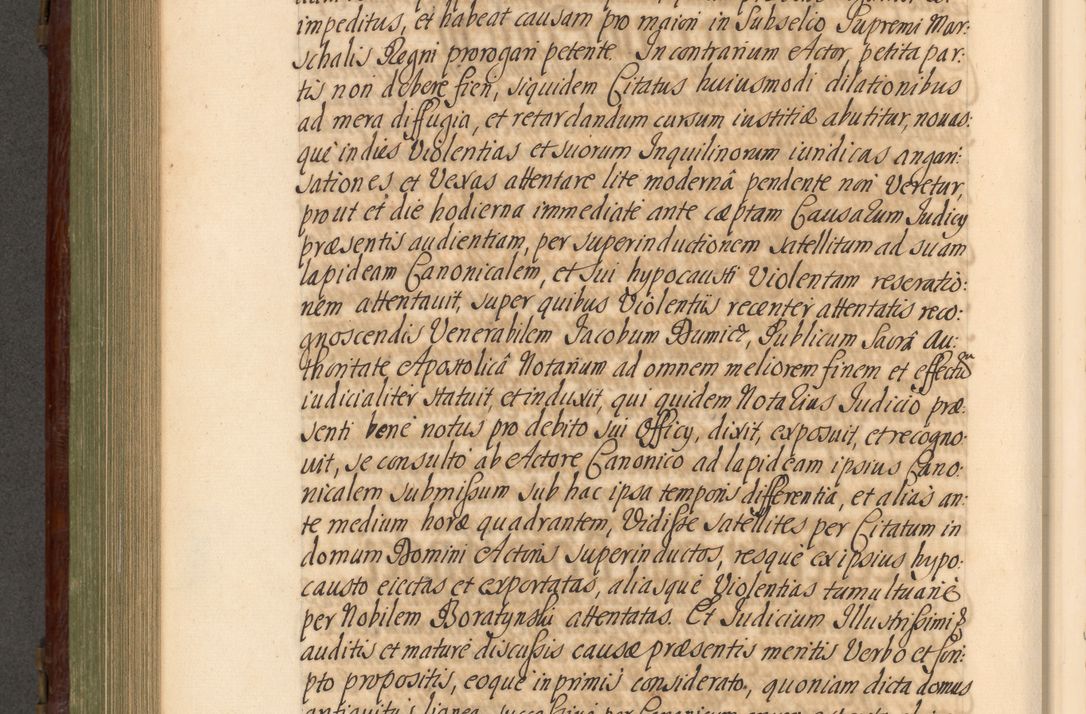 impeditus, et habeat causam pro maiori in Subselio Supremi Mar:
schalis Regni prorogari petente. In contrarium Actor, petita par:
tis non debere fieri, siquidem Citatus huiusmodi dilationibus
ad mera diffugia, et retardandum cursum iustitiæ abutitur, nouas:
que indies Violentias et suorum Inquilinorum iuridicas angari:
sationes et Vexas attentare lite modernâ pendente non Veretur,
prout et die hodierna immediate ante cæptam Causarum Judicij
præsentis audientiam, per superinductionem satellitum ad suam
lapideam Canonicalem, et sui hypocausti Violentam reseratio:
nem attentauit, super quibus Violentiis recenter attentatis reco:
gnoscendis Venerabilem Jacobum Dumicz, Publicum Sacrâ Au:
thoritate Apostolicâ Notarium ad omnem meliorem finem et effectum
iudicialiter statuit, et induxit, qui quidem Notarius Judicio præ:
senti bene notus pro debito sui Officij, dixit, exposuit, et recogno:
uit, se consulto ab Actore Canonico ad lapideam ipsius Cano:
nicalem submissum sub hac ipsa temporis differentia, et alias an:
te medium horæ quadrantem, Vidisse satellites per Citatum in
domum Domini Actoris superinductos, resque ex ipsius hypo:
causto eiectas et exportatas, aliasque Violentias tumultuarie
per Nobilem Boratynski attentatas. Et Judicium Illustrissimi &
auditis et mature discussis causæ præsentis meritis Verbo et scri:
pto propositis, eoque inprimis considerato, quoniam dicta domus